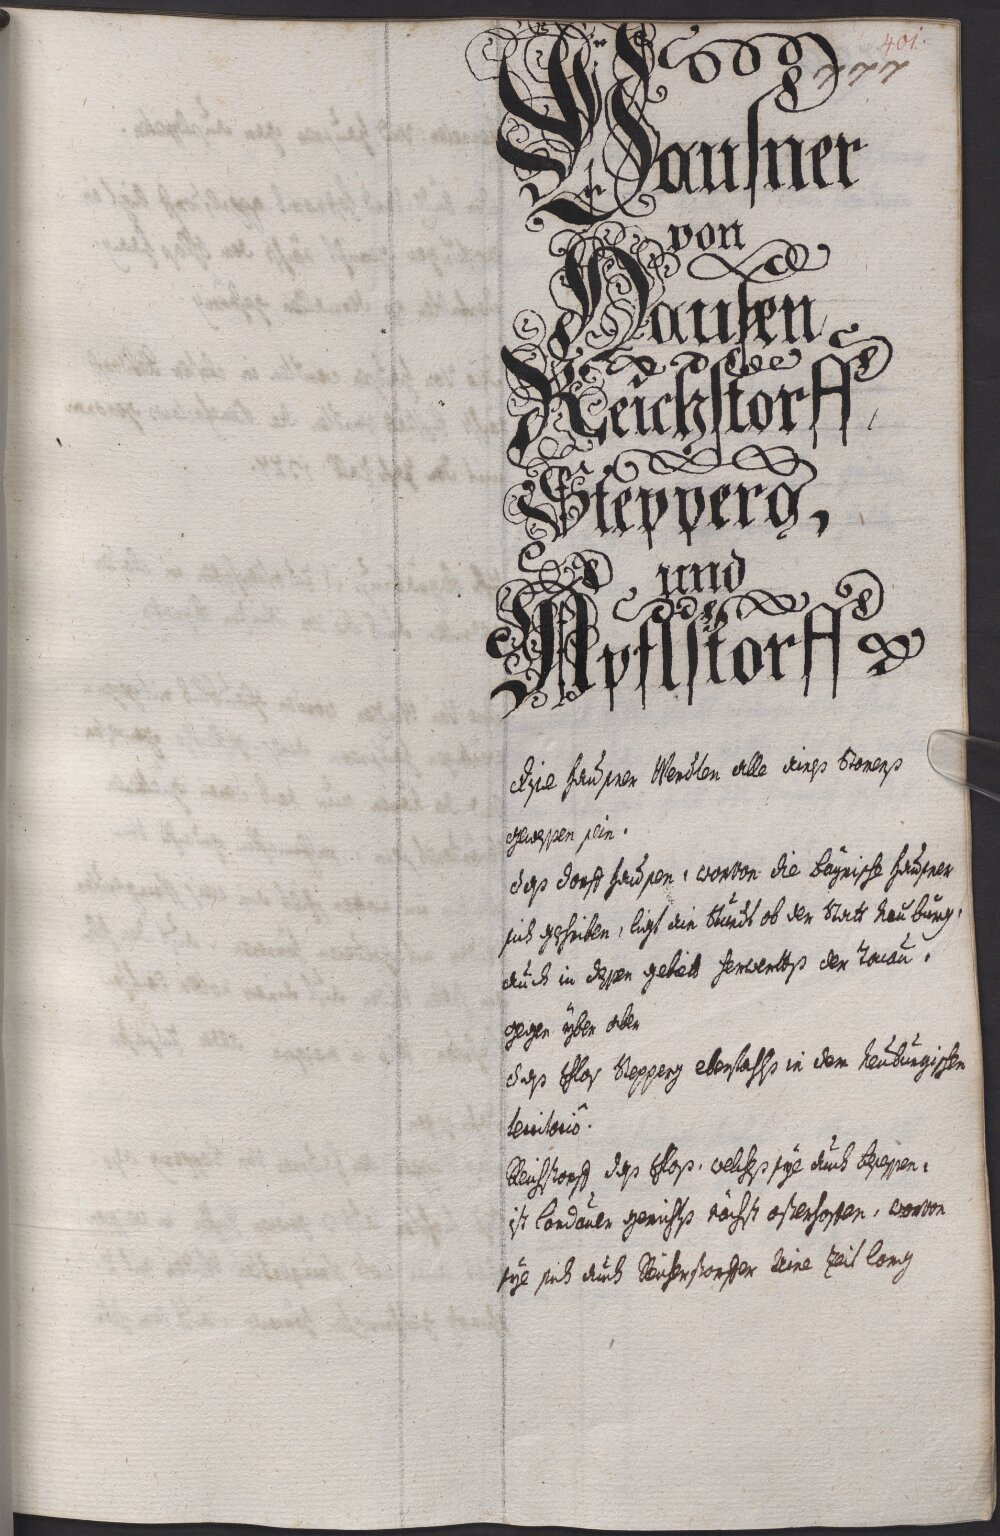 401.
777
Hausner
von
Hausen,
Reichstorff,
Stepperg,
und
Apflstorff
Dise Hausner Werden alle aines Stamens
gewessen sein.
das dorff Hausen, worvon die bayrische Hausner
sich geschriben, ligt ain Stundt ob der Statt Neuburg,
auch in dessen gebiett herwerths der Donau.
gegen über aber
das schlos Stepperg ebenfahls in dem Neuburgischen
territorio.
Reichstorff das schlos, welches sye auch besessen,
ist Landauer gerichts nächst osterhoffen, worvon
sye sich auch Reicherstorffer Keine Zeit lang